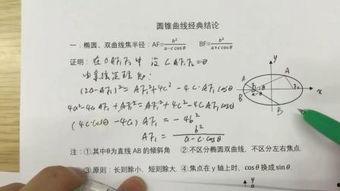 圆锥曲线经典结论
一.椭圆、双曲线焦半径：AF=b²/(a-c cosθ) BF=b²/(a+c cosθ)
证明：在△AF₁F₂中 设∠AF₁F₂=θ
由余弦定理知：
(2a-AF₁)²=AF₁²+4c²-4c AF₁ cosθ
4a²-4a AF₁+AF₁²=AF₁²+4c²-4c AF₁ cosθ
(4c cosθ-4a) AF₁=-4b²
AF₁=b²/(a-c cosθ)
y
A
x
B
注：①其中θ为直线 AB 的倾斜角 ②不区分椭圆双曲线，不区分左右焦点
③原则：长则减小、短则除大 ④焦点在 y 轴上时，cosθ换成sinθ